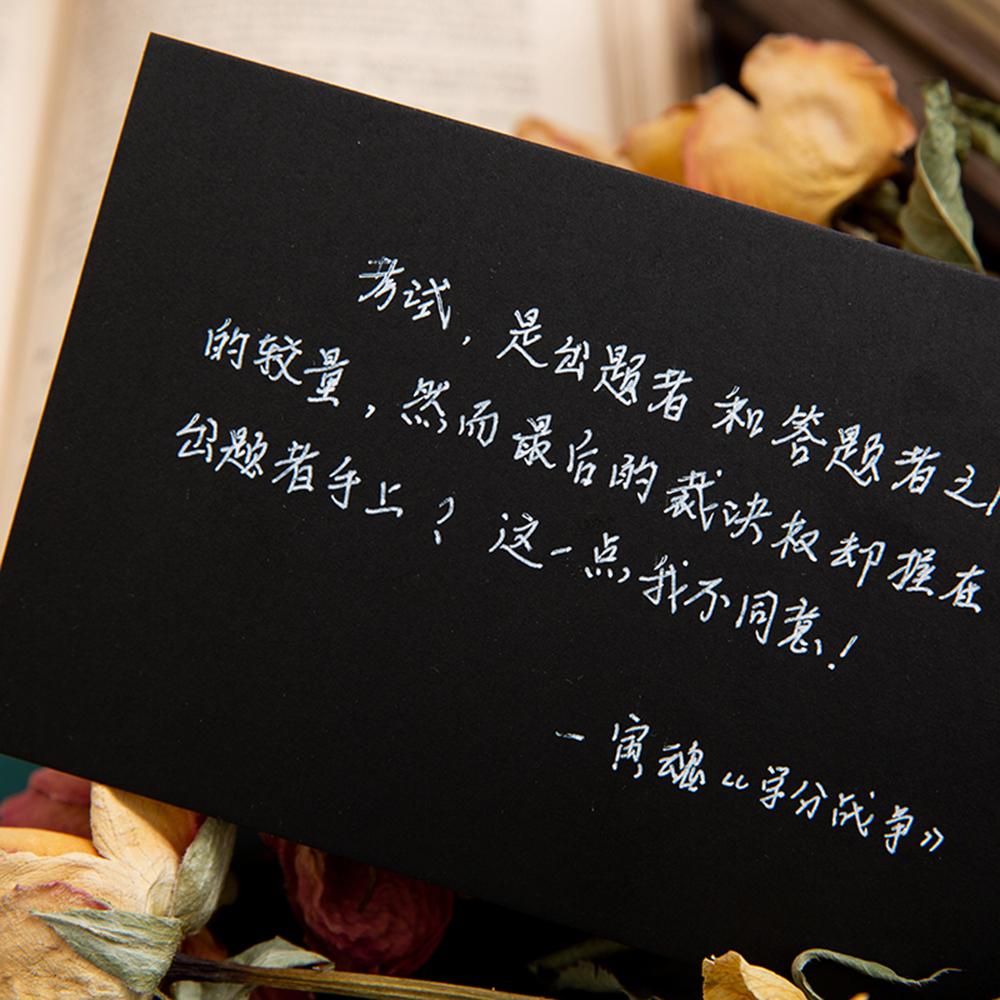 考试，是出题者和答题者之间
的较量，然而最后的裁决权却握在
出题者手上？这一点，我不同意！
—寅魂《学分战争》